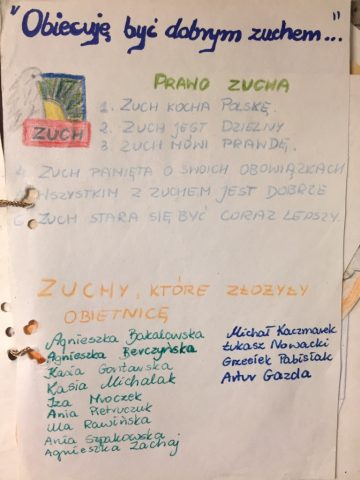 "Obiecuję być dobrym zuchem..."
PRAWO ZUCHA
ZUCH
1. ZUCH KOCHA POLSKĘ.
2. ZUCH JEST DZIELNY
3. ZUCH MÓWI PRAWDĘ.
4. ZUCH PAMIĘTA O SWOICH OBOWIĄZKACH
WSZYSTKIM Z ZUCHEM JEST DOBRZE
6. ZUCH STARA SIĘ BYĆ CORAZ LEPSZY.
ZUCHY, KTÓRE ZŁOŻYŁY
OBIETNICĘ
Agnieszka Bakalowska
Agnieszka Berczyńska
Kasia
Kasia Michalak
Iza Mroczek
Ania Pietruczuk
Ula Rawińska
Ania Szpakowska
Agnieszka Zachaj
Michał Kaczmarek
Łukasz Nowacki
Grzesiek Pabisiak
Artur Gazda